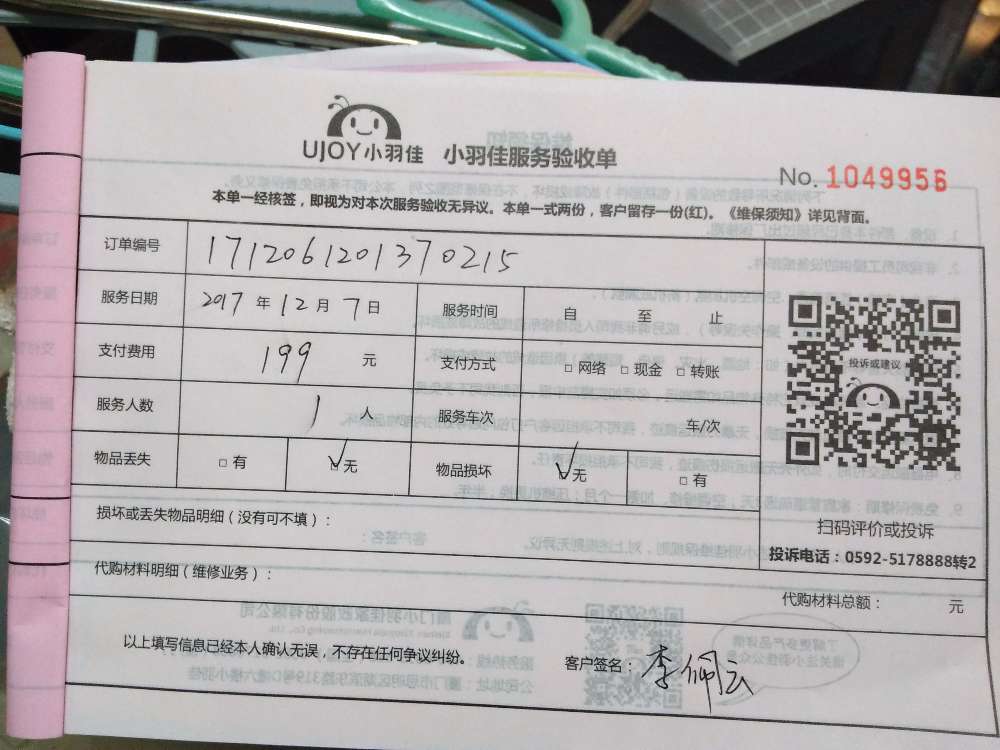 UJOY小羽佳 小羽佳服务验收单
No. 1049956
本单一经核签，即视为对本次服务验收无异议。本单一式两份，客户留存一份(红)。《维保须知》详见背面。
订单编号 1712061201370215
服务日期 2017 年 12 月 7 日 服务时间 自 至 止
支付费用 199 元 支付方式 □ 网络 □ 现金 □ 转账
服务人数 1 人 服务车次 车/次
物品丢失 □ 有 ☑ 无 物品损坏 ☑ 无 □ 有
投诉或建议
扫码评价或投诉
投诉电话：0592-5178888转2
损坏或丢失物品明细（没有可不填）：
代购材料明细（维修业务）：
代购材料总额： 元
以上填写信息已经本人确认无误，不存在任何争议纠纷。
客户签名：李佩云